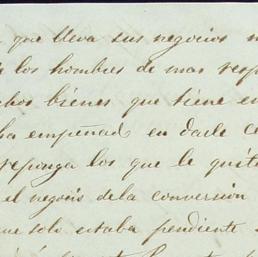 que lleva sus negocios
los hombres de mas resp
chos bienes que tiene en
ha empeñado en darle ce
reponga los que le quit
el negocio dela conversion
ue solo estaba pendiente